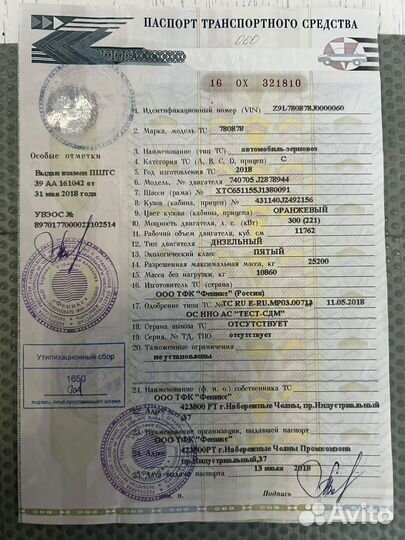 ПАСПОРТ ТРАНСПОРТНОГО СРЕДСТВА
080
16 ОХ 321810
1. Идентификационный номер (VIN) Z9L780878J0000060
2. Марка, модель ТС 780878
3. Наименование (тип ТС) автомобиль-зерновоз
4. Категория ТС (A, B, C, D, прицеп) C
5. Год изготовления ТС 2018
6. Модель, № двигателя 740705 J2878944
7. Шасси (рама) № XTC651155J1380091
8. Кузов (кабина, прицеп) № 431140J2492156
9. Цвет кузова (кабины, прицепа) ОРАНЖЕВЫЙ
10. Мощность двигателя, л. с. (кВт) 300 (221)
11. Рабочий объем двигателя, куб. см 11762
12. Тип двигателя ДИЗЕЛЬНЫЙ
13. Экологический класс ПЯТЫЙ
14. Разрешенная максимальная масса, кг 25200
15. Масса без нагрузки, кг 10860
16. Изготовитель ТС (страна)
ООО ТФК "Феникс" (Россия)
17. Одобрение типа ТС № ТС RU E-RU.MP03.00713 11.05.2018
ОС ННО АС "ТЕСТ-СДМ"
18. Страна вывоза ТС ОТСУТСТВУЕТ
19. Серия, № ТД, ТПО отсутствует
20. Таможенные ограничения
не установлены
21. Наименование (ф. и. о.) собственника ТС
ООО ТФК "Феникс"
22. Адрес
423800 РТ г.Набережные Челны, пр.Индустриальный
37
23. Наименование организации, выдавшей паспорт
ООО ТФК "Феникс"
24. Адрес 423800РТ г.Набережные Челны Промкомзона
пр.Индустриальный,37
25. Дата выдачи паспорта 13 июля 2018
М. п. Подпись
Особые отметки
Выдан взамен ПШТС
39 АА 161042 от
31 мая 2018 года
УВЭОС №
8970177000022102514
"Феникс"
Утилизационный сбор
1650
подпись лица проставившего штамп
Avito